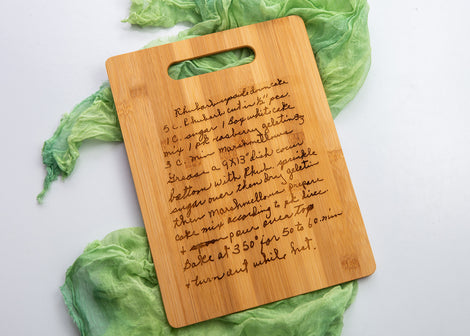 Rhubarb upside down cake
5 c. Rhubarb cut in ½" pcs.
1 c. sugar 1 Box white cake
mix 1 pk rasberry gelatin 3
3 c. min marshmellows
Grease a 9x13" dish cover
bottom with Rhub. sprinkle
sugar over then dry gelatin
then Marshmellows prepare
cake mix according to pk direc
+ pour over top
Bake at 350° for 50 to 60 min
+ turn out while hot.